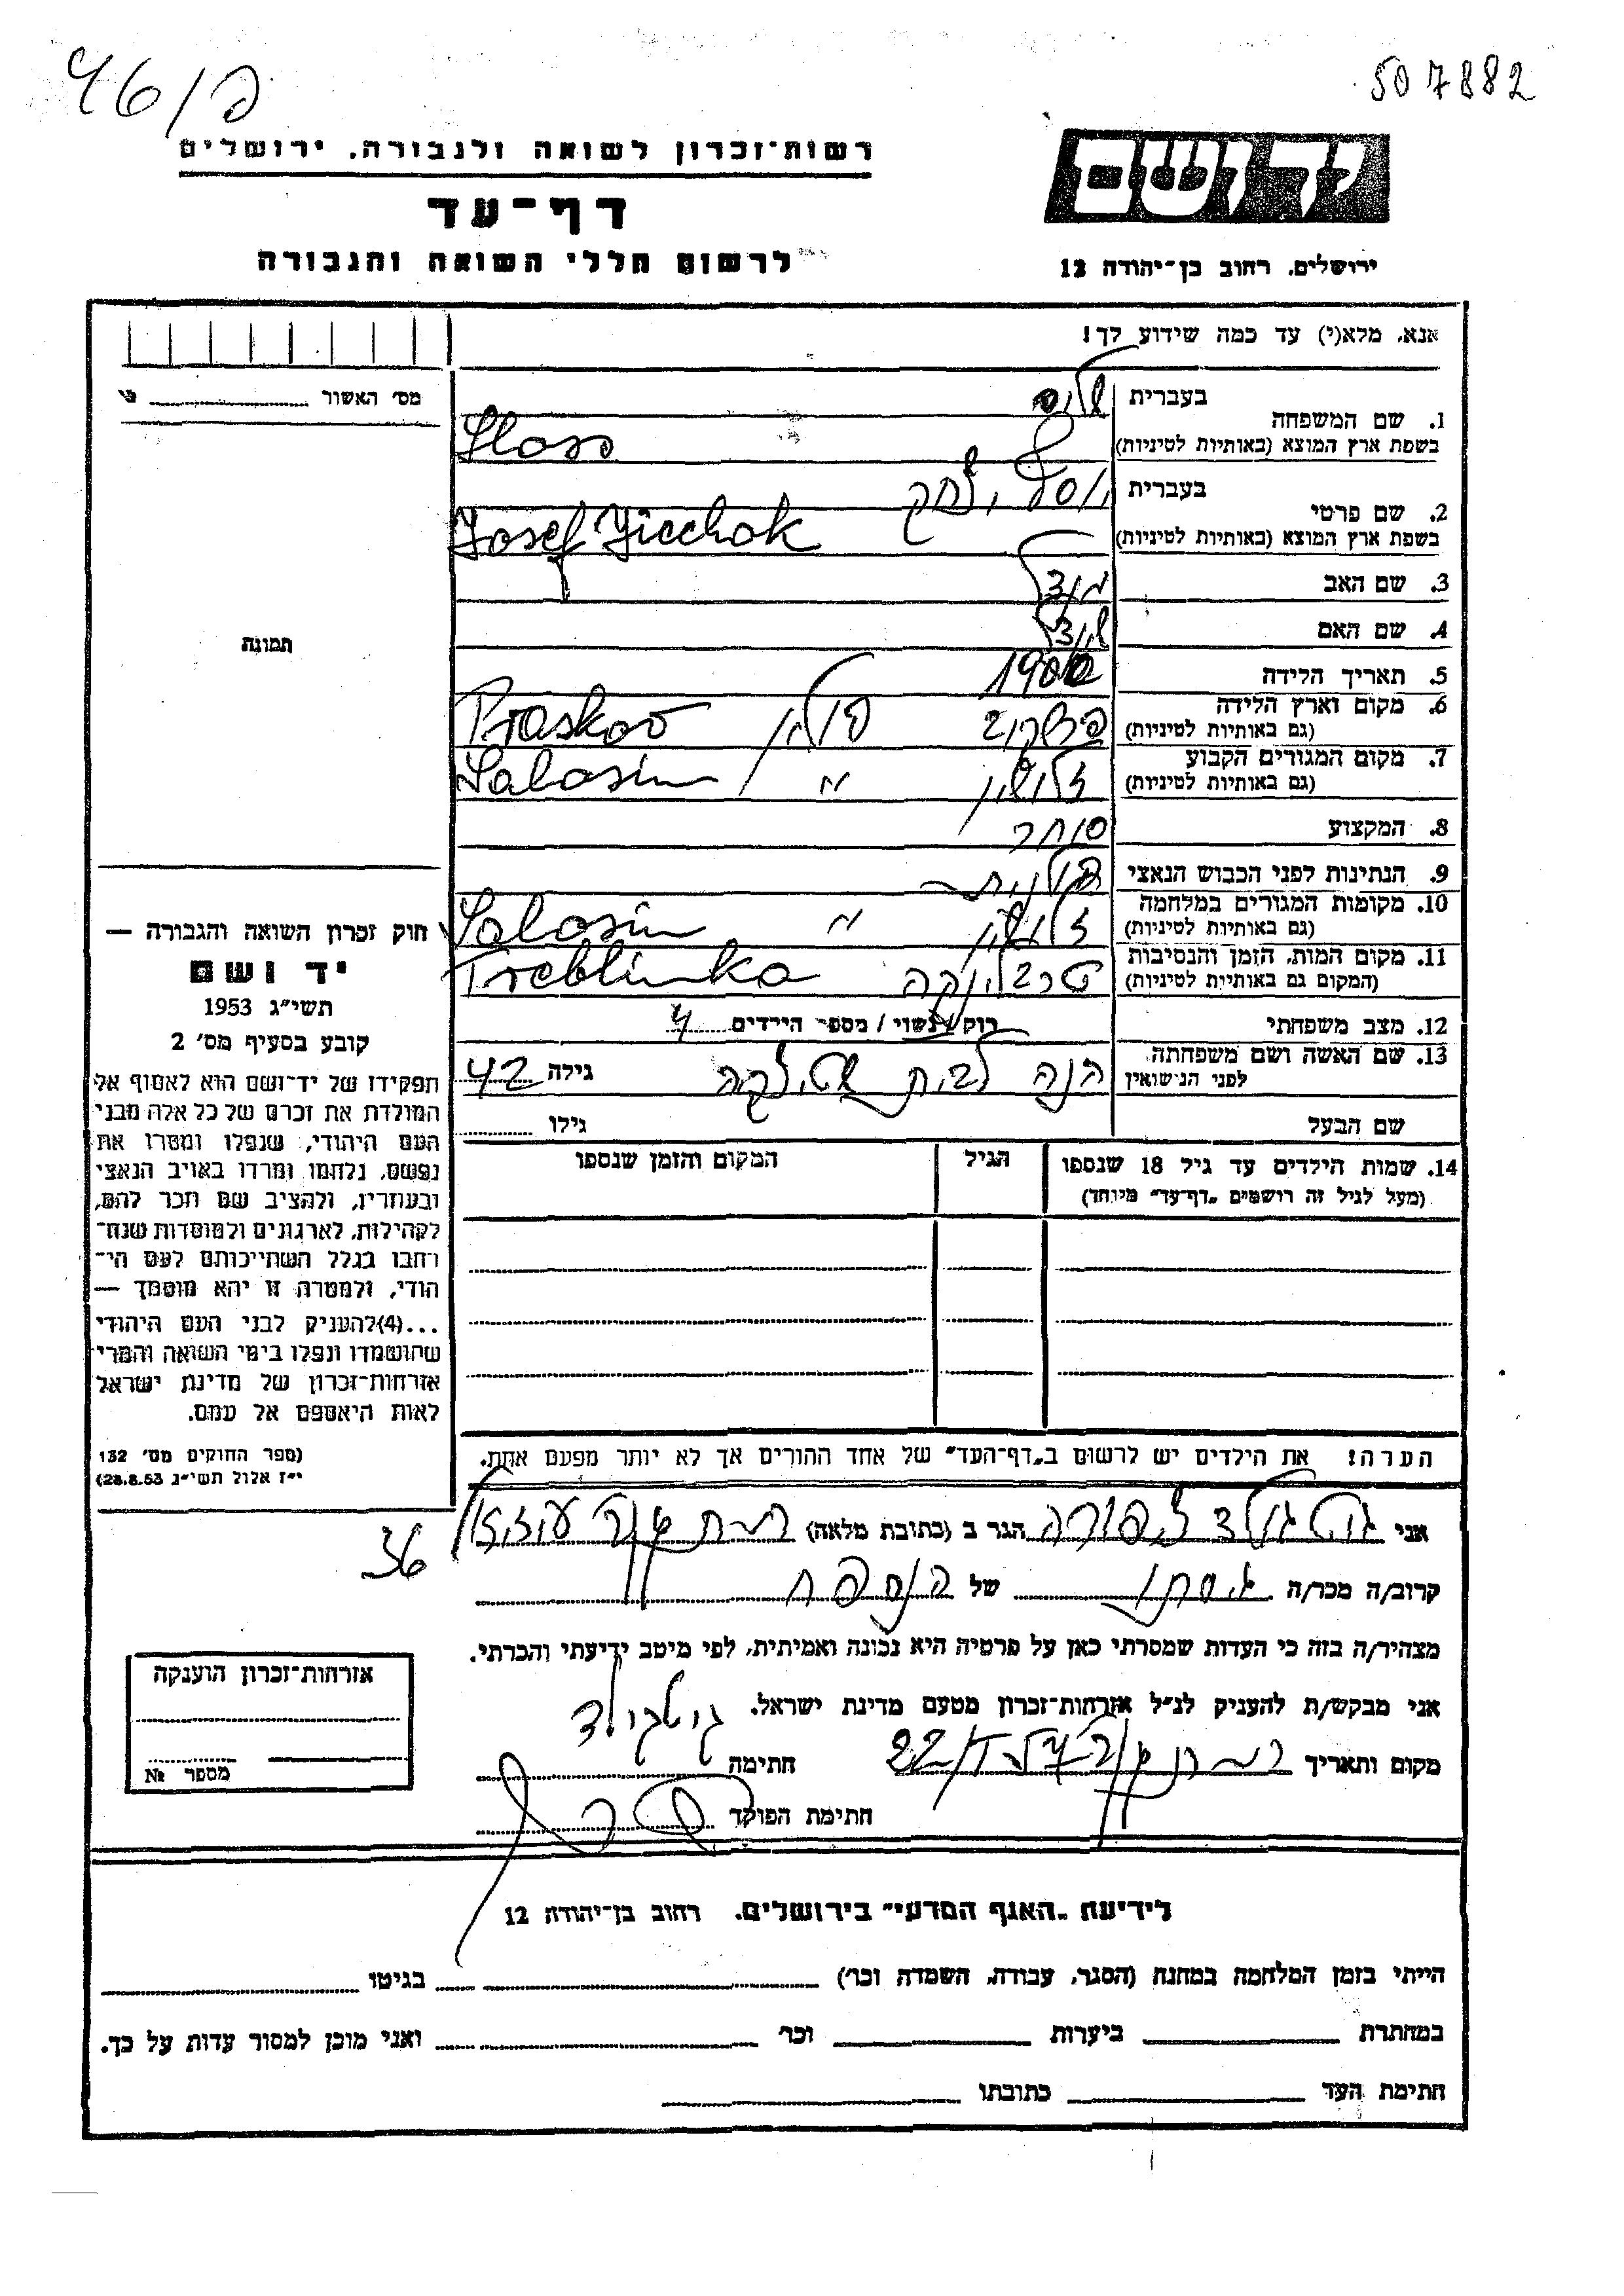 46/פ
507882
רשות־זכרון לשואה ולגבורה, ירושלים
יד ושם
דף־עד
לרשום חללי השואה והגבורה
ירושלים, רחוב בן־יהודה 12
אנא, מלא(י) עד כמה שידוע לך!
מס׳ האשור
1. שם המשפחה
בעברית
בשפת ארץ המוצא (באותיות לטיניות) Sloss
2. שם פרטי
בעברית יוסף יצחק
בשפת ארץ המוצא (באותיות לטיניות) Josef Jicchok
3. שם האב
4. שם האם
תמונה
5. תאריך הלידה
6. מקום וארץ הלידה
(גם באותיות לטיניות) פולין
7. מקום המגורים הקבוע
(גם באותיות לטיניות) ״
8. המקצוע סוחר
9. הנתינות לפני הכבוש הנאצי פולנית
10. מקומות המגורים במלחמה
(גם באותיות לטיניות) ״
11. מקום המות, הזמן והנסיבות
(המקום גם באותיות לטיניות) טרבלינקה Treblinka
12. מצב משפחתי רווק / נשוי / מספר הילדים 4
13. שם האשה ושם משפחתה
לפני הנישואין חנה לבית גילה 42
שם הבעל גילו
14. שמות הילדים עד גיל 18 שנספו
(מעל לגיל זה רושמים „דף־עד״ מיוחד)
הגיל
המקום והזמן שנספו
הערה! את הילדים יש לרשום ב„דף־העד״ של אחד ההורים אך לא יותר מפעם אחת.
חוק זכרון השואה והגבורה —
יד ושם
תשי״ג 1953
קובע בסעיף מס׳ 2
תפקידו של יד־ושם הוא לאסוף אל
המולדת את זכרם של כל אלה מבני
העם היהודי, שנפלו ומסרו את
נפשם, נלחמו ומרדו באויב הנאצי
ובעוזריו, ולהציב שם וזכר להם,
לקהילות, לארגונים ולמוסדות שנח־
רבו בגלל השתייכותם לעם הי־
הודי, ולמטרה זו יהא מוסמך —
...(4)להעניק לבני העם היהודי
שהושמדו ונפלו בימי השואה והמרי
אזרחות־זכרון של מדינת ישראל
לאות היאספם אל עמם.
(ספר החוקים מס׳ 132
י״ז אלול תשי״ג 28.8.53)
אני גוטגולד צפורה הגר ב (כתובת מלאה) רמת גן עוזיאל
36
קרוב/ה מכר/ה גיסתו של הנספה
מצהיר/ה בזה כי העדות שמסרתי כאן על פרטיה היא נכונה ואמיתית, לפי מיטב ידיעתי והכרתי.
אני מבקש/ת להעניק לנ״ל אזרחות־זכרון מטעם מדינת ישראל.
מקום ותאריך רמת גן חתימה גוטגולד
חתימת הפוקד
אזרחות־זכרון הוענקה
מספר №
לידיעת „האגף המדעי״ בירושלים, רחוב בן־יהודה 12
הייתי בזמן המלחמה במחנה (הסגר, עבודה, השמדה וכו׳) בגיטו
במחתרת ביערות וכו׳ ואני מוכן למסור עדות על כך.
חתימת העד כתובתו